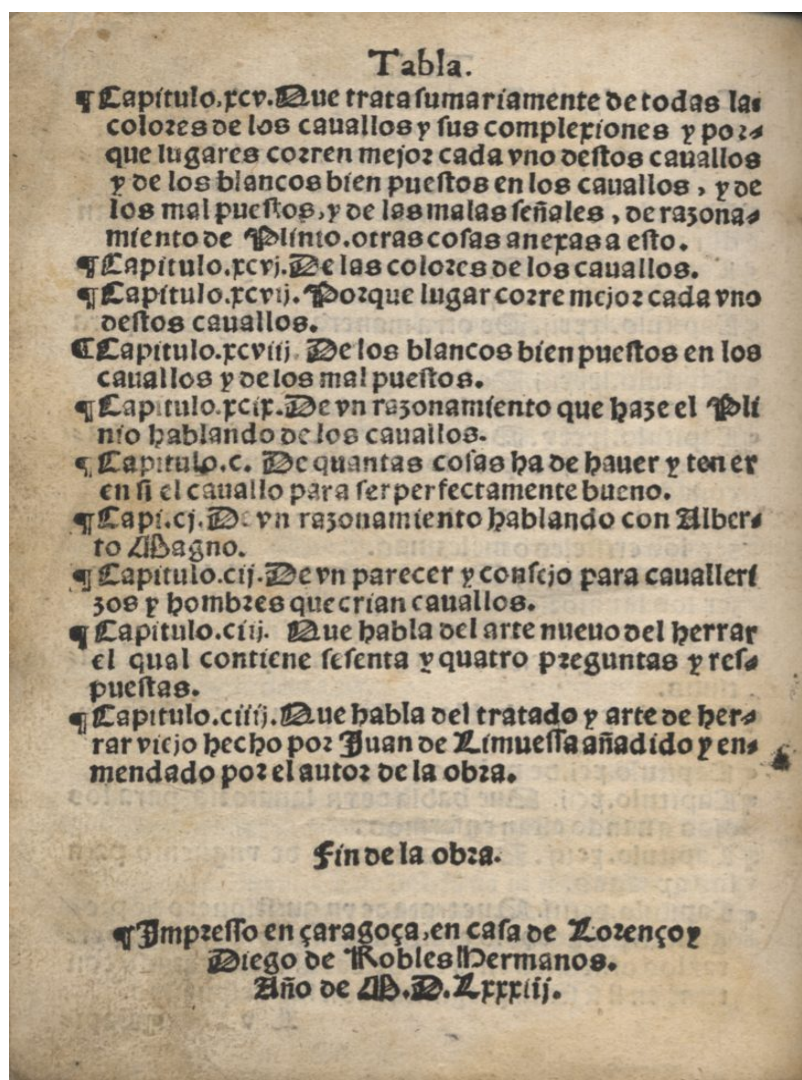 Tabla.
¶Capitulo.xcv.Que trata sumariamente de todas las
colores de los cauallos y sus complexiones y por-
que lugares corren mejor cada vno destos cauallos
y de los blancos bien puestos en los cauallos, y de
los mal puestos, y de las malas señales, de razona-
miento de Plinio.otras cosas anexas a esto.
¶Capitulo.xcvj.De las colores de los cauallos.
¶Capitulo.xcvij.Porque lugar corre mejor cada vno
destos cauallos.
¶Capitulo.xcviij. De los blancos bien puestos en los
cauallos y de los mal puestos.
¶Capitulo.xcix.De vn razonamiento que haze el Pli
nio hablando de los cauallos.
¶Capitulo.c. De quantas cosas ha de hauer y tener
en si el cauallo para ser perfectamente bueno.
¶Capi.cj.De vn razonamiento hablando con Alber-
to Magno.
¶Capitulo.cij.De vn parecer y consejo para caualleri
zos y hombres que crian cauallos.
¶Capitulo.ciij. Que habla del arte nueuo del herrar
el qual contiene sesenta y quatro preguntas y res-
puestas.
¶Capitulo.ciiij.Que habla del tratado y arte de her-
rar viejo hecho por Juan de Limuessa añadido y en-
mendado por el autor de la obra.
Fin de la obra.
¶Impresso en çaragoça, en casa de Lorenço y
Diego de Robles Hermanos.
Año de M.D.Lxxxiij.